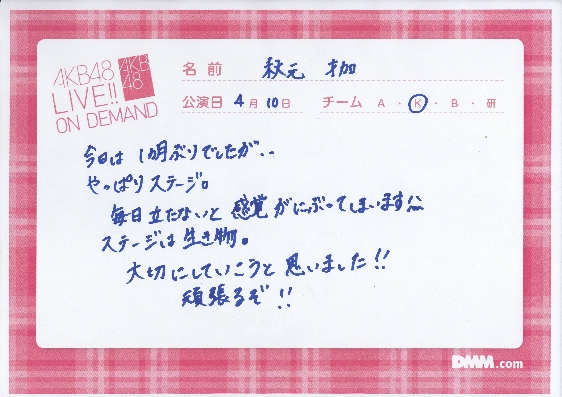 AKB48
LIVE!!
ON DEMAND
AKB
48
名前 秋元 才加
公演日 4月10日 チーム A・K・B・研
今日は1ヶ月ぶりでしたが..
やっぱりステージ。
毎日立たないと感覚がにぶってしまいます
ステージは生き物。
大切にしていこうと思いました!!
頑張るぞ!!
DMM.com